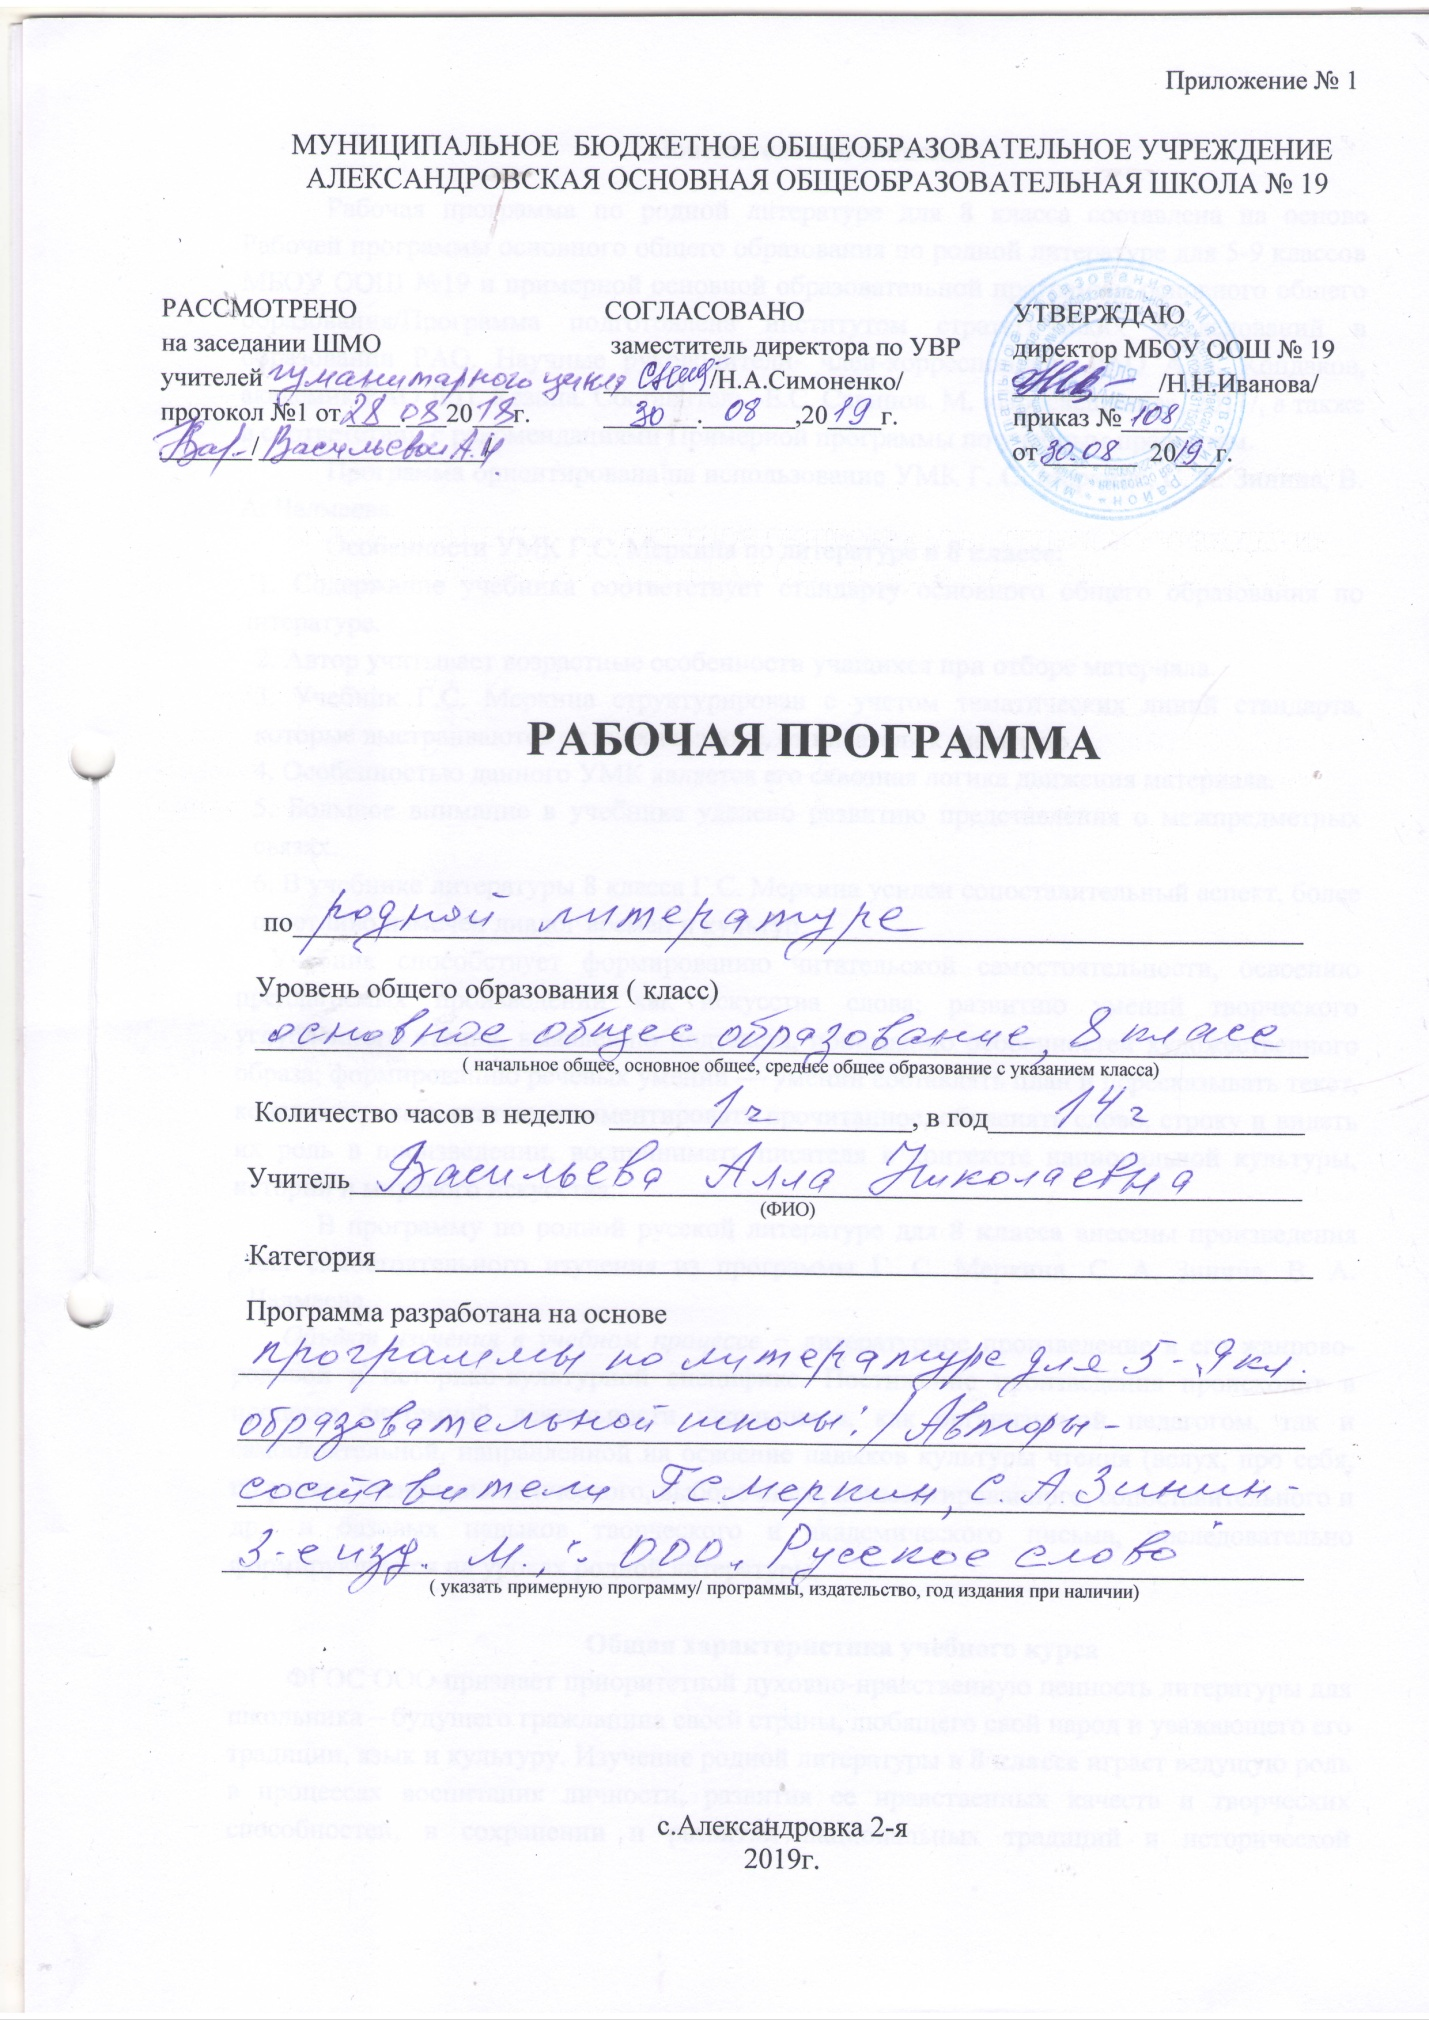 Приложение № 1
МУНИЦИПАЛЬНОЕ БЮДЖЕТНОЕ ОБЩЕОБРАЗОВАТЕЛЬНОЕ УЧРЕЖДЕНИЕ
АЛЕКСАНДРОВСКАЯ ОСНОВНАЯ ОБЩЕОБРАЗОВАТЕЛЬНАЯ ШКОЛА № 19
РАССМОТРЕНО
на заседании ШМО
учителей гуманитарного цикла
протокол №1 от 28.08 2018г.
/ Васильевой А.Н
СОГЛАСОВАНО
заместитель директора по УВР
/Н.А.Симоненко/
30 . 08 ,2019г.
УТВЕРЖДАЮ
директор МБОУ ООШ № 19
/Н.Н.Иванова/
приказ № 108
от 30.08 2019г.
РАБОЧАЯ ПРОГРАММА
по родной литературе
Уровень общего образования ( класс)
основное общее образование, 8 класс
( начальное общее, основное общее, среднее общее образование с указанием класса)
Количество часов в неделю 1ч , в год 14ч
Учитель Васильева Алла Николаевна
(ФИО)
Категория
Программа разработана на основе
программы по литературе для 5-9 кл.
образовательной школы:/Авторы-
составители Г.С Меркин, С А Зинин-
3-е изд. М,:. ООО, "Русское слово"
( указать примерную программу/ программы, издательство, год издания при наличии)
с.Александровка 2-я
2019г.